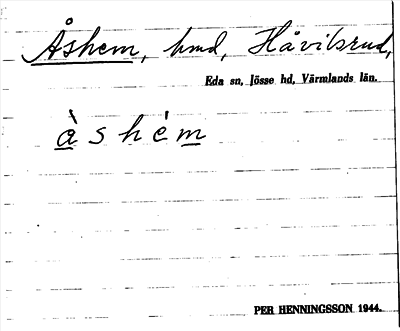 Åshem, hmd, Håvilsrud,
Eda sn, Jösse hd, Värmlands län.
a̠̎̀s h é m̠
PER HENNINGSSON 1944.